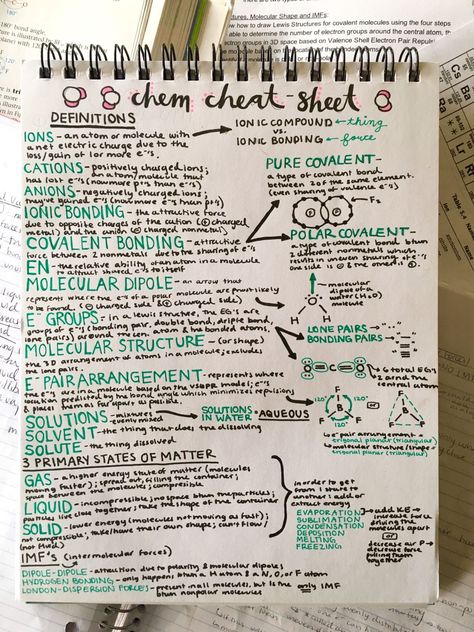 ctures, Molecular Shape and IMFs:
w how to draw Lewis Structures for covalent molecules using the four steps
able to determine the number of electron groups around the central atom,
ctron groups in 3D space based on Valence Shell Electron Pair Repul
chem cheat-sheet
DEFINITIONS
IONS - an atom or molecule with
a net electric charge due to the
loss/gain of 1 or more e⁻'s
CATIONS - positively charged ions;
an atom/molecule that
has lost e⁻'s (now more p⁺'s than e⁻'s)
ANIONS - negatively charged ions;
they've gained e⁻'s (now more e⁻'s than p⁺'s)
IONIC BONDING - the attractive force
due to opposite charges of the cation (⊕ charged
metal) and the anion (⊖ charged nonmetal)
COVALENT BONDING - attractive
force between 2 nonmetals due to the sharing of e⁻'s
EN - the relative ability of an atom in a molecule
to attract shared e⁻s to itself
MOLECULAR DIPOLE - an arrow that
represents where the e⁻s of a polar molecule are most likely
to be found (⊕ charged side & ⊖ charged side)
E⁻ GROUPS - in a lewis structure, the EG's are
groups of e⁻'s (bonding pair, double bond, triple bond,
lone pairs) around the cen. atom & has bonded atoms
MOLECULAR STRUCTURE - (or shape)
the 3D arrangement of atoms in a molecule; excludes
the lone pairs.
E⁻ PAIR ARRANGEMENT - represents where
the e⁻s are in a molecule based on the VSEPR model; e⁻s
location predicted by the bond angle which minimizes repulsions
& places them as far apart as possible.
SOLUTIONS - mixtures
evenly mixed
SOLUTIONS IN WATER = AQUEOUS
SOLVENT - the thing that does the dissolving
SOLUTE - the thing dissolved
IONIC COMPOUND ← thing
vs.
IONIC BONDING ← force
PURE COVALENT -
a type of covalent bond
between 2 of the same element.
(even sharing of valence e⁻s)
F₂
F F
POLAR COVALENT -
a type of covalent bond btwn
2 different nonmetals which
results in uneven sharing of e⁻s
one side is ⊕ & the other is ⊖.
molecular
dipole of a
water (H₂O)
molecule
O
H H
LONE PAIRS →
BONDING PAIRS →
O C O
4 total EG's
2 around the
central atom
F
120° 120°
B
F F
120°
or
F
B
F F
e⁻ pair arrangement =
trigonal planar (triangular)
molecular structure/shape =
trigonal planar (triangular)
3 PRIMARY STATES OF MATTER
GAS - a higher energy state of matter (molecules
moving faster); spread out, filling the container;
space between the molecules; compressible
LIQUID - incompressible; no space btwn the particles;
particles close together; take the shape of the container
SOLID - lower energy (molecules not moving as fast);
not compressible; take/have their own shape; can't flow!
(not fluid)
in order to get
from 1 state to
another: add or
extract energy
EVAPORATION
SUBLIMATION
CONDENSATION
DEPOSITION
MELTING
FREEZING
add KE →
increase force
driving the
molecules apart
or
decrease force
pulling them
together
IMF's (intermolecular forces)
DIPOLE-DIPOLE - attraction due to polarity & molecular dipoles
HYDROGEN BONDING - only happens btwn a H atom & a N, O, or F atom
LONDON-DISPERSION FORCES - present in all molecules, but is the only IMF
btwn nonpolar molecules